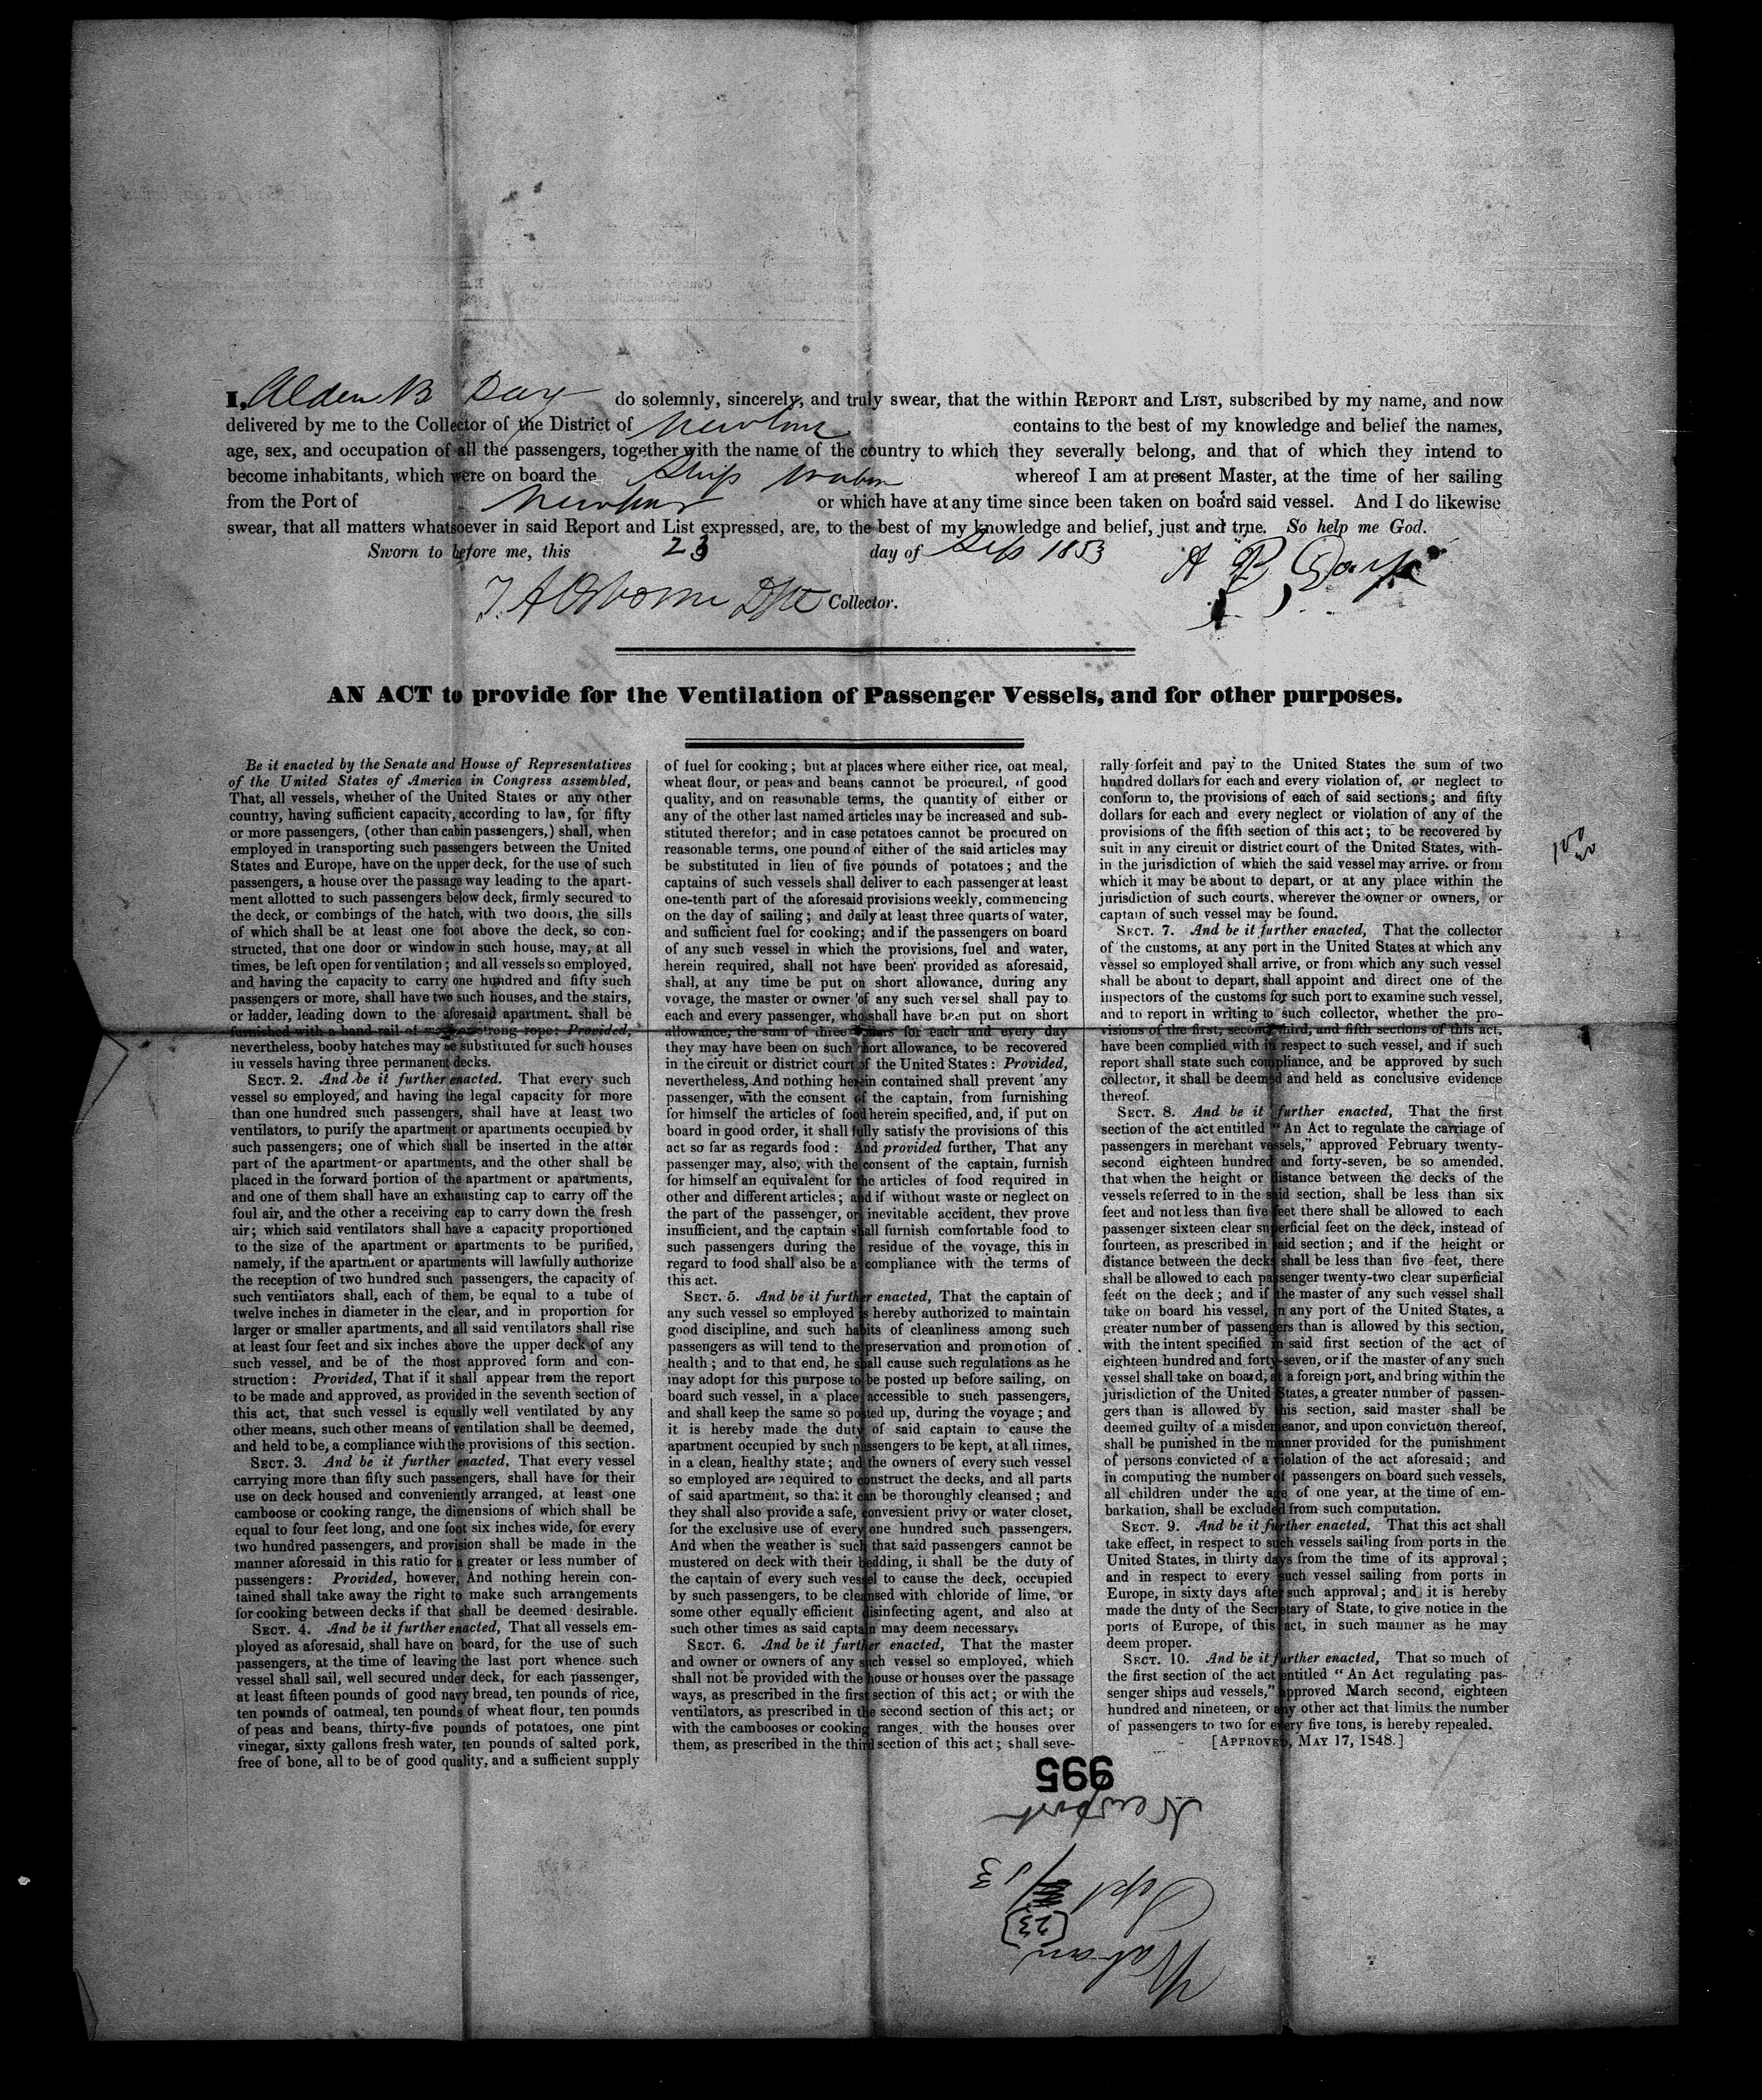 I, Alden B Day do solemnly, sincerely, and truly swear, that the within REPORT and LIST, subscribed by my name, and now
delivered by me to the Collector of the District of contains to the best of my knowledge and belief the names,
age, sex, and occupation of all the passengers, together with the name of the country to which they severally belong, and that of which they intend to
become inhabitants, which were on board the Ship Waban whereof I am at present Master, at the time of her sailing
from the Port of Newport or which have at any time since been taken on board said vessel. And I do likewise
swear, that all matters whatsoever in said Report and List expressed, are, to the best of my knowledge and belief, just and true. So help me God.
Sworn to before me, this 23 day of Sep 1853 A B Day
T. A Osborne Collector.
AN ACT to provide for the Ventilation of Passenger Vessels, and for other purposes.
Be it enacted by the Senate and House of Representatives
of the United States of America in Congress assembled,
That, all vessels, whether of the United States or any other
country, having sufficient capacity, according to law, for fifty
or more passengers, (other than cabin passengers,) shall, when
employed in transporting such passengers between the United
States and Europe, have on the upper deck, for the use of such
passengers, a house over the passage way leading to the apart-
ment allotted to such passengers below deck, firmly secured to
the deck, or combings of the hatch, with two doors, the sills
of which shall be at least one foot above the deck, so con-
structed, that one door or window in such house, may, at all
times, be left open for ventilation; and all vessels so employed,
and having the capacity to carry one hundred and fifty such
passengers or more, shall have two such houses, and the stairs,
or ladder, leading down to the aforesaid apartment, shall be
furnished with a hand-rail of wood or strong rope: Provided,
nevertheless, booby hatches may be substituted for such houses
in vessels having three permanent decks.
SECT. 2. And be it further enacted. That every such
vessel so employed, and having the legal capacity for more
than one hundred such passengers, shall have at least two
ventilators, to purify the apartment or apartments occupied by
such passengers; one of which shall be inserted in the after
part of the apartment or apartments, and the other shall be
placed in the forward portion of the apartment or apartments,
and one of them shall have an exhausting cap to carry off the
foul air, and the other a receiving cap to carry down the fresh
air; which said ventilators shall have a capacity proportioned
to the size of the apartment or apartments to be purified,
namely, if the apartment or apartments will lawfully authorize
the reception of two hundred such passengers, the capacity of
such ventilators shall, each of them, be equal to a tube of
twelve inches in diameter in the clear, and in proportion for
larger or smaller apartments, and all said ventilators shall rise
at least four feet and six inches above the upper deck of any
such vessel, and be of the most approved form and con-
struction: Provided, That if it shall appear from the report
to be made and approved, as provided in the seventh section of
this act, that such vessel is equally well ventilated by any
other means, such other means of ventilation shall be deemed,
and held to be, a compliance with the provisions of this section.
SECT. 3. And be it further enacted. That every vessel
carrying more than fifty such passengers, shall have for their
use on deck housed and conveniently arranged, at least one
camboose or cooking range, the dimensions of which shall be
equal to four feet long, and one foot six inches wide, for every
two hundred passengers, and provision shall be made in the
manner aforesaid in this ratio for a greater or less number of
passengers: Provided, however, And nothing herein con-
tained shall take away the right to make such arrangements
for cooking between decks if that shall be deemed desirable.
SECT. 4. And be it further enacted, That all vessels em-
ployed as aforesaid, shall have on board, for the use of such
passengers, at the time of leaving the last port whence such
vessel shall sail, well secured under deck, for each passenger,
at least fifteen pounds of good navy bread, ten pounds of rice,
ten pounds of oatmeal, ten pounds of wheat flour, ten pounds
of peas and beans, thirty-five pounds of potatoes, one pint
vinegar, sixty gallons fresh water, ten pounds of salted pork,
free of bone, all to be of good quality, and a sufficient supply
of fuel for cooking; but at places where either rice, oat meal,
wheat flour, or peas and beans cannot be procured, of good
quality, and on reasonable terms, the quantity of either or
any of the other last named articles may be increased and sub-
stituted therefor; and in case potatoes cannot be procured on
reasonable terms, one pound of either of the said articles may
be substituted in lieu of five pounds of potatoes; and the
captains of such vessels shall deliver to each passenger at least
one-tenth part of the aforesaid provisions weekly, commencing
on the day of sailing; and daily at least three quarts of water,
and sufficient fuel for cooking; and if the passengers on board
of any such vessel in which the provisions, fuel and water,
herein required, shall not have been provided as aforesaid,
shall, at any time be put on short allowance, during any
voyage, the master or owner of any such vessel shall pay to
each and every passenger, who shall have been put on short
allowance, the sum of three dollars for each and every day
they may have been on such short allowance, to be recovered
in the circuit or district court of the United States: Provided,
nevertheless, And nothing herein contained shall prevent any
passenger, with the consent of the captain, from furnishing
for himself the articles of food herein specified, and, if put on
board in good order, it shall fully satisfy the provisions of this
act so far as regards food: And provided further, That any
passenger may, also, with the consent of the captain, furnish
for himself an equivalent for the articles of food required in
other and different articles; and if without waste or neglect on
the part of the passenger, or inevitable accident, they prove
insufficient, and the captain shall furnish comfortable food to
such passengers during the residue of the voyage, this in
regard to food shall also be a compliance with the terms of
this act.
SECT. 5. And be it further enacted, That the captain of
any such vessel so employed is hereby authorized to maintain
good discipline, and such habits of cleanliness among such
passengers as will tend to the preservation and promotion of
health; and to that end, he shall cause such regulations as he
may adopt for this purpose to be posted up before sailing, on
board such vessel, in a place accessible to such passengers,
and shall keep the same so posted up, during the voyage; and
it is hereby made the duty of said captain to cause the
apartment occupied by such passengers to be kept, at all times,
in a clean, healthy state; and the owners of every such vessel
so employed are required to construct the decks, and all parts
of said apartment, so that it can be thoroughly cleansed; and
they shall also provide a safe, convenient privy or water closet,
for the exclusive use of every one hundred such passengers.
And when the weather is such that said passengers cannot be
mustered on deck with their bedding, it shall be the duty of
the captain of every such vessel to cause the deck, occupied
by such passengers, to be cleansed with chloride of lime, or
some other equally efficient disinfecting agent, and also at
such other times as said captain may deem necessary.
SECT. 6. And be it further enacted, That the master
and owner or owners of any such vessel so employed, which
shall not be provided with the house or houses over the passage
ways, as prescribed in the first section of this act; or with the
ventilators, as prescribed in the second section of this act; or
with the cambooses or cooking ranges, with the houses over
them, as prescribed in the third section of this act; shall seve-
rally forfeit and pay to the United States the sum of two
hundred dollars for each and every violation of, or neglect to
conform to, the provisions of each of said sections; and fifty
dollars for each and every neglect or violation of any of the
provisions of the fifth section of this act; to be recovered by
suit in any circuit or district court of the United States, with-
in the jurisdiction of which the said vessel may arrive, or from
which it may be about to depart, or at any place within the
jurisdiction of such courts, wherever the owner or owners, or
captain of such vessel may be found.
SECT. 7. And be it further enacted, That the collector
of the customs, at any port in the United States at which any
vessel so employed shall arrive, or from which any such vessel
shall be about to depart, shall appoint and direct one of the
inspectors of the customs for such port to examine such vessel,
and to report in writing to such collector, whether the pro-
visions of the first, second, third, and fifth sections of this act,
have been complied with in respect to such vessel, and if such
report shall state such compliance, and be approved by such
collector, it shall be deemed and held as conclusive evidence
thereof.
SECT. 8. And be it further enacted, That the first
section of the act entitled "An Act to regulate the carriage of
passengers in merchant vessels," approved February twenty-
second eighteen hundred and forty-seven, be so amended,
that when the height or distance between the decks of the
vessels referred to in the said section, shall be less than six
feet and not less than five feet there shall be allowed to each
passenger sixteen clear superficial feet on the deck, instead of
fourteen, as prescribed in said section; and if the height or
distance between the decks shall be less than five feet, there
shall be allowed to each passenger twenty-two clear superficial
feet on the deck; and if the master of any such vessel shall
take on board his vessel, in any port of the United States, a
greater number of passengers than is allowed by this section,
with the intent specified in said first section of the act of
eighteen hundred and forty-seven, or if the master of any such
vessel shall take on board, at a foreign port, and bring within the
jurisdiction of the United States, a greater number of passen-
gers than is allowed by this section, said master shall be
deemed guilty of a misdemeanor, and upon conviction thereof,
shall be punished in the manner provided for the punishment
of persons convicted of a violation of the act aforesaid; and
in computing the number of passengers on board such vessels,
all children under the age of one year, at the time of em-
barkation, shall be excluded from such computation.
SECT. 9. And be it further enacted, That this act shall
take effect, in respect to such vessels sailing from ports in the
United States, in thirty days from the time of its approval;
and in respect to every such vessel sailing from ports in
Europe, in sixty days after such approval; and it is hereby
made the duty of the Secretary of State, to give notice in the
ports of Europe, of this act, in such manner as he may
deem proper.
SECT. 10. And be it further enacted, That so much of
the first section of the act entitled "An Act regulating pas-
senger ships aud vessels," approved March second, eighteen
hundred and nineteen, or any other act that limits the number
of passengers to two for every five tons, is hereby repealed.
[APPROVED, MAY 17, 1848.]
995
Newport
Sept /53
[23]
Waban